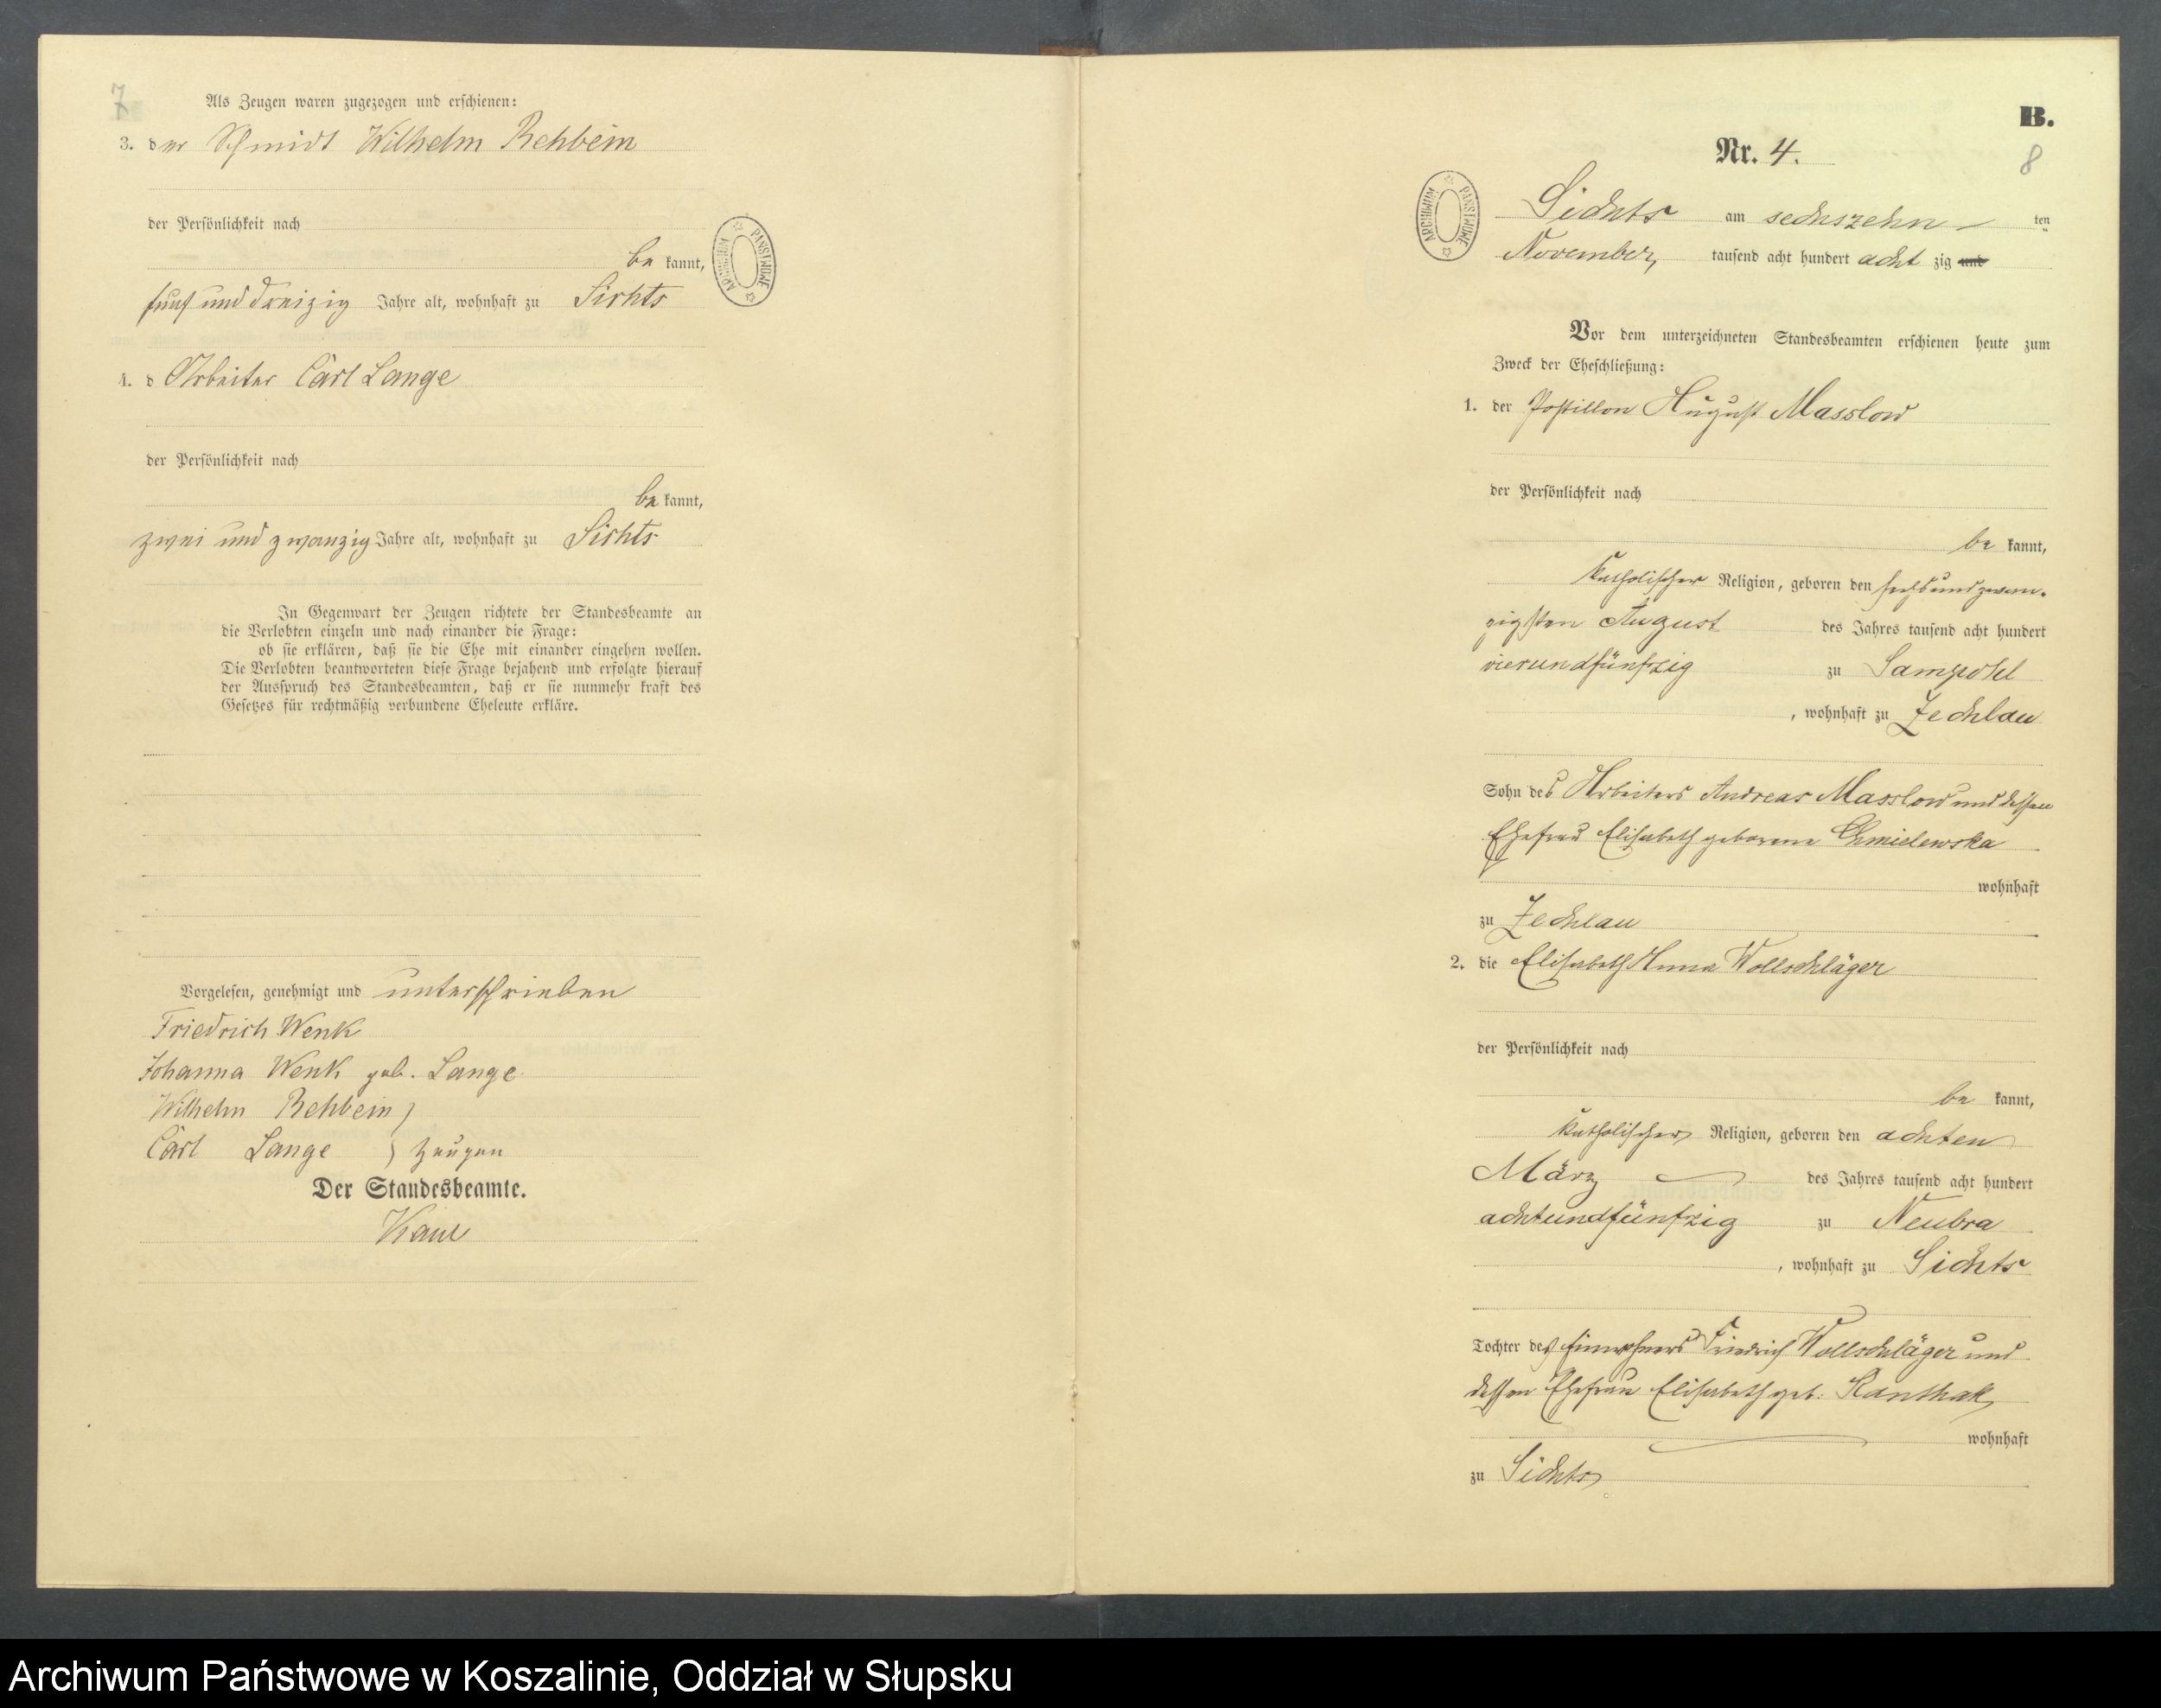 7
Als Zeugen waren zugezogen und erschienen:
3. der Schmidt Wilhelm Rehbein
der Persönlichkeit nach
be kannt,
fünf und dreizig Jahre alt, wohnhaft zu Sichts
4. d Arbeiter Carl Lange
der Persönlichkeit nach
be kannt,
zwei und zwanzig Jahre alt, wohnhaft zu Sichts
In Gegenwart der Zeugen richtete der Standesbeamte an
die Verlobten einzeln und nach einander die Frage:
ob sie erklären, daß sie die Ehe mit einander eingehen wollen.
Die Verlobten beantworteten diese Frage bejahend und erfolgte hierauf
der Ausspruch des Standesbeamten, daß er sie nunmehr kraft des
Gesetzes für rechtmäßig verbundene Eheleute erkläre.
Vorgelesen, genehmigt und unterschrieben
Friedrich Wenk
Johanna Wenk geb. Lange
Wilhelm Rehbein )
Carl Lange ) Zeugen
Der Standesbeamte.
ARCHIWUM PAŃSTWOWE
B.
8
Nr. 4.
ARCHIWUM PAŃSTWOWE
Sichts am sechszehn ten
November, tausend acht hundert acht zig und
Vor dem unterzeichneten Standesbeamten erschienen heute zum
Zweck der Eheschließung:
1. der Postillon August Masslow
der Persönlichkeit nach
be kannt,
katholischer Religion, geboren den sechsundzwan-
zigsten August des Jahres tausend acht hundert
vierundfünfzig zu Sampohl
, wohnhaft zu Zechlau
Sohn des Arbeiters Andreas Masslow und dessen
Ehefrau Elisabeth geborene Chmielewska
wohnhaft
zu Zechlau
2. die Elisabeth Anna Wollschläger
der Persönlichkeit nach
be kannt,
katholischer Religion, geboren den achten
März des Jahres tausend acht hundert
achtundfünfzig zu Neubra
, wohnhaft zu Sichts
Tochter des Einwohners Friedrich Wollschläger und
dessen Ehefrau Elisabeth geb. Ranthak
wohnhaft
zu Sichts
Archiwum Państwowe w Koszalinie, Oddział w Słupsku